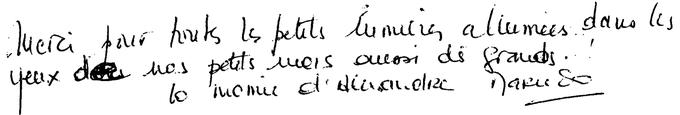 Merci pour touts les petits lumières allumées dans les
yeux de nos petits mais aussi de grands !
la mamie d'Alexandre